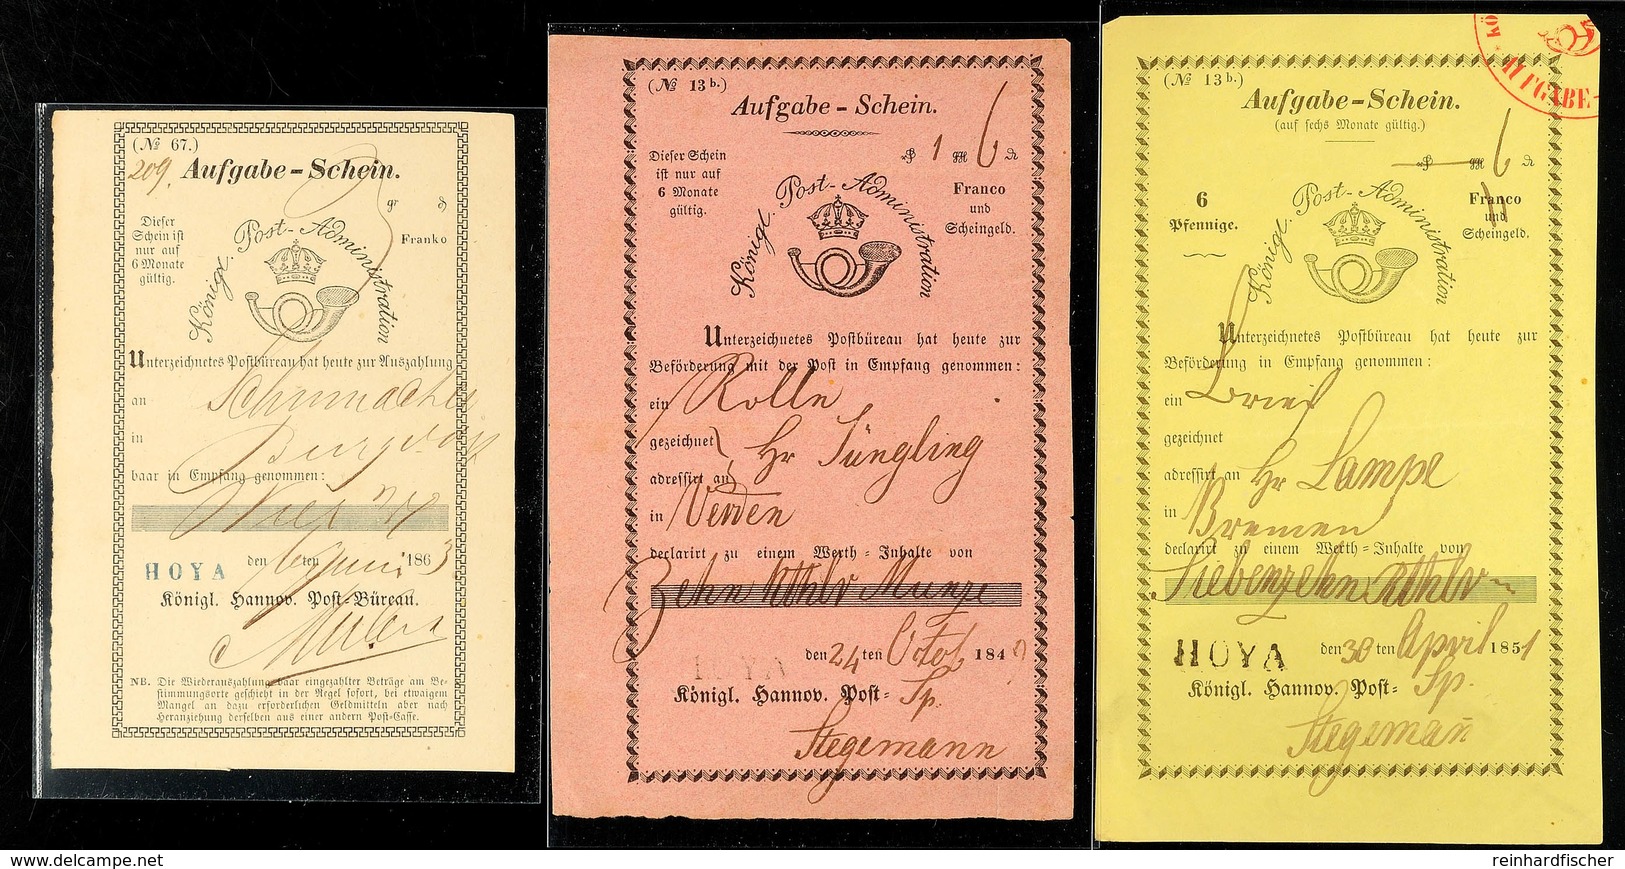 (№ 67.)
209. Aufgabe-Schein.
gr ₰
Dieser
Schein ist
nur auf
6 Monate
gültig.
Königl. Post-Administration
Franko
Unterzeichnetes Postbüreau hat heute zur Auszahlung
an Schumacher
in Burgdorf
baar in Empfang genommen:
HOYA den 6ten Juni 1863
Königl. Hannov. Post-Büreau.
NB. Die Wiederauszahlung baar eingezahlter Beträge am Be-
stimmungsorte geschieht in der Regel sofort, bei etwaigem
Mangel an dazu erforderlichen Geldmitteln aber nach
Heranziehung derselben aus einer andern Post-Casse.
(№ 13b.)
Aufgabe-Schein.
1 6
Dieser Schein
ist nur auf
6 Monate
gültig.
Königl. Post-Administration
Franco
und
Scheingeld.
Unterzeichnetes Postbüreau hat heute zur
Beförderung mit der Post in Empfang genommen:
ein Rolle
gezeichnet
adressirt an Hr Jüngling
in Verden
declarirt zu einem Werth-Inhalte von
Zehn Rthlr Munze
HOYA den 24ten Octob 184
Königl. Hannov. Post-Sp.
Stegemann
(№ 13b.)
Aufgabe-Schein.
(auf sechs Monate gültig.)
6
6
Pfennige.
Königl. Post-Administration
Franco
und
Scheingeld.
Unterzeichnetes Postbüreau hat heute zur
Beförderung in Empfang genommen:
ein Brief
gezeichnet
adressirt an Hr Lampe
in Bremen
declarirt zu einem Werth-Inhalte von
Siebenzehn Rthlr
HOYA den 30ten April 1851
Königl. Hannov. Post-Sp.
Stegeman̄
AUFGABE-
www.delcampe.net
reinhardfischer